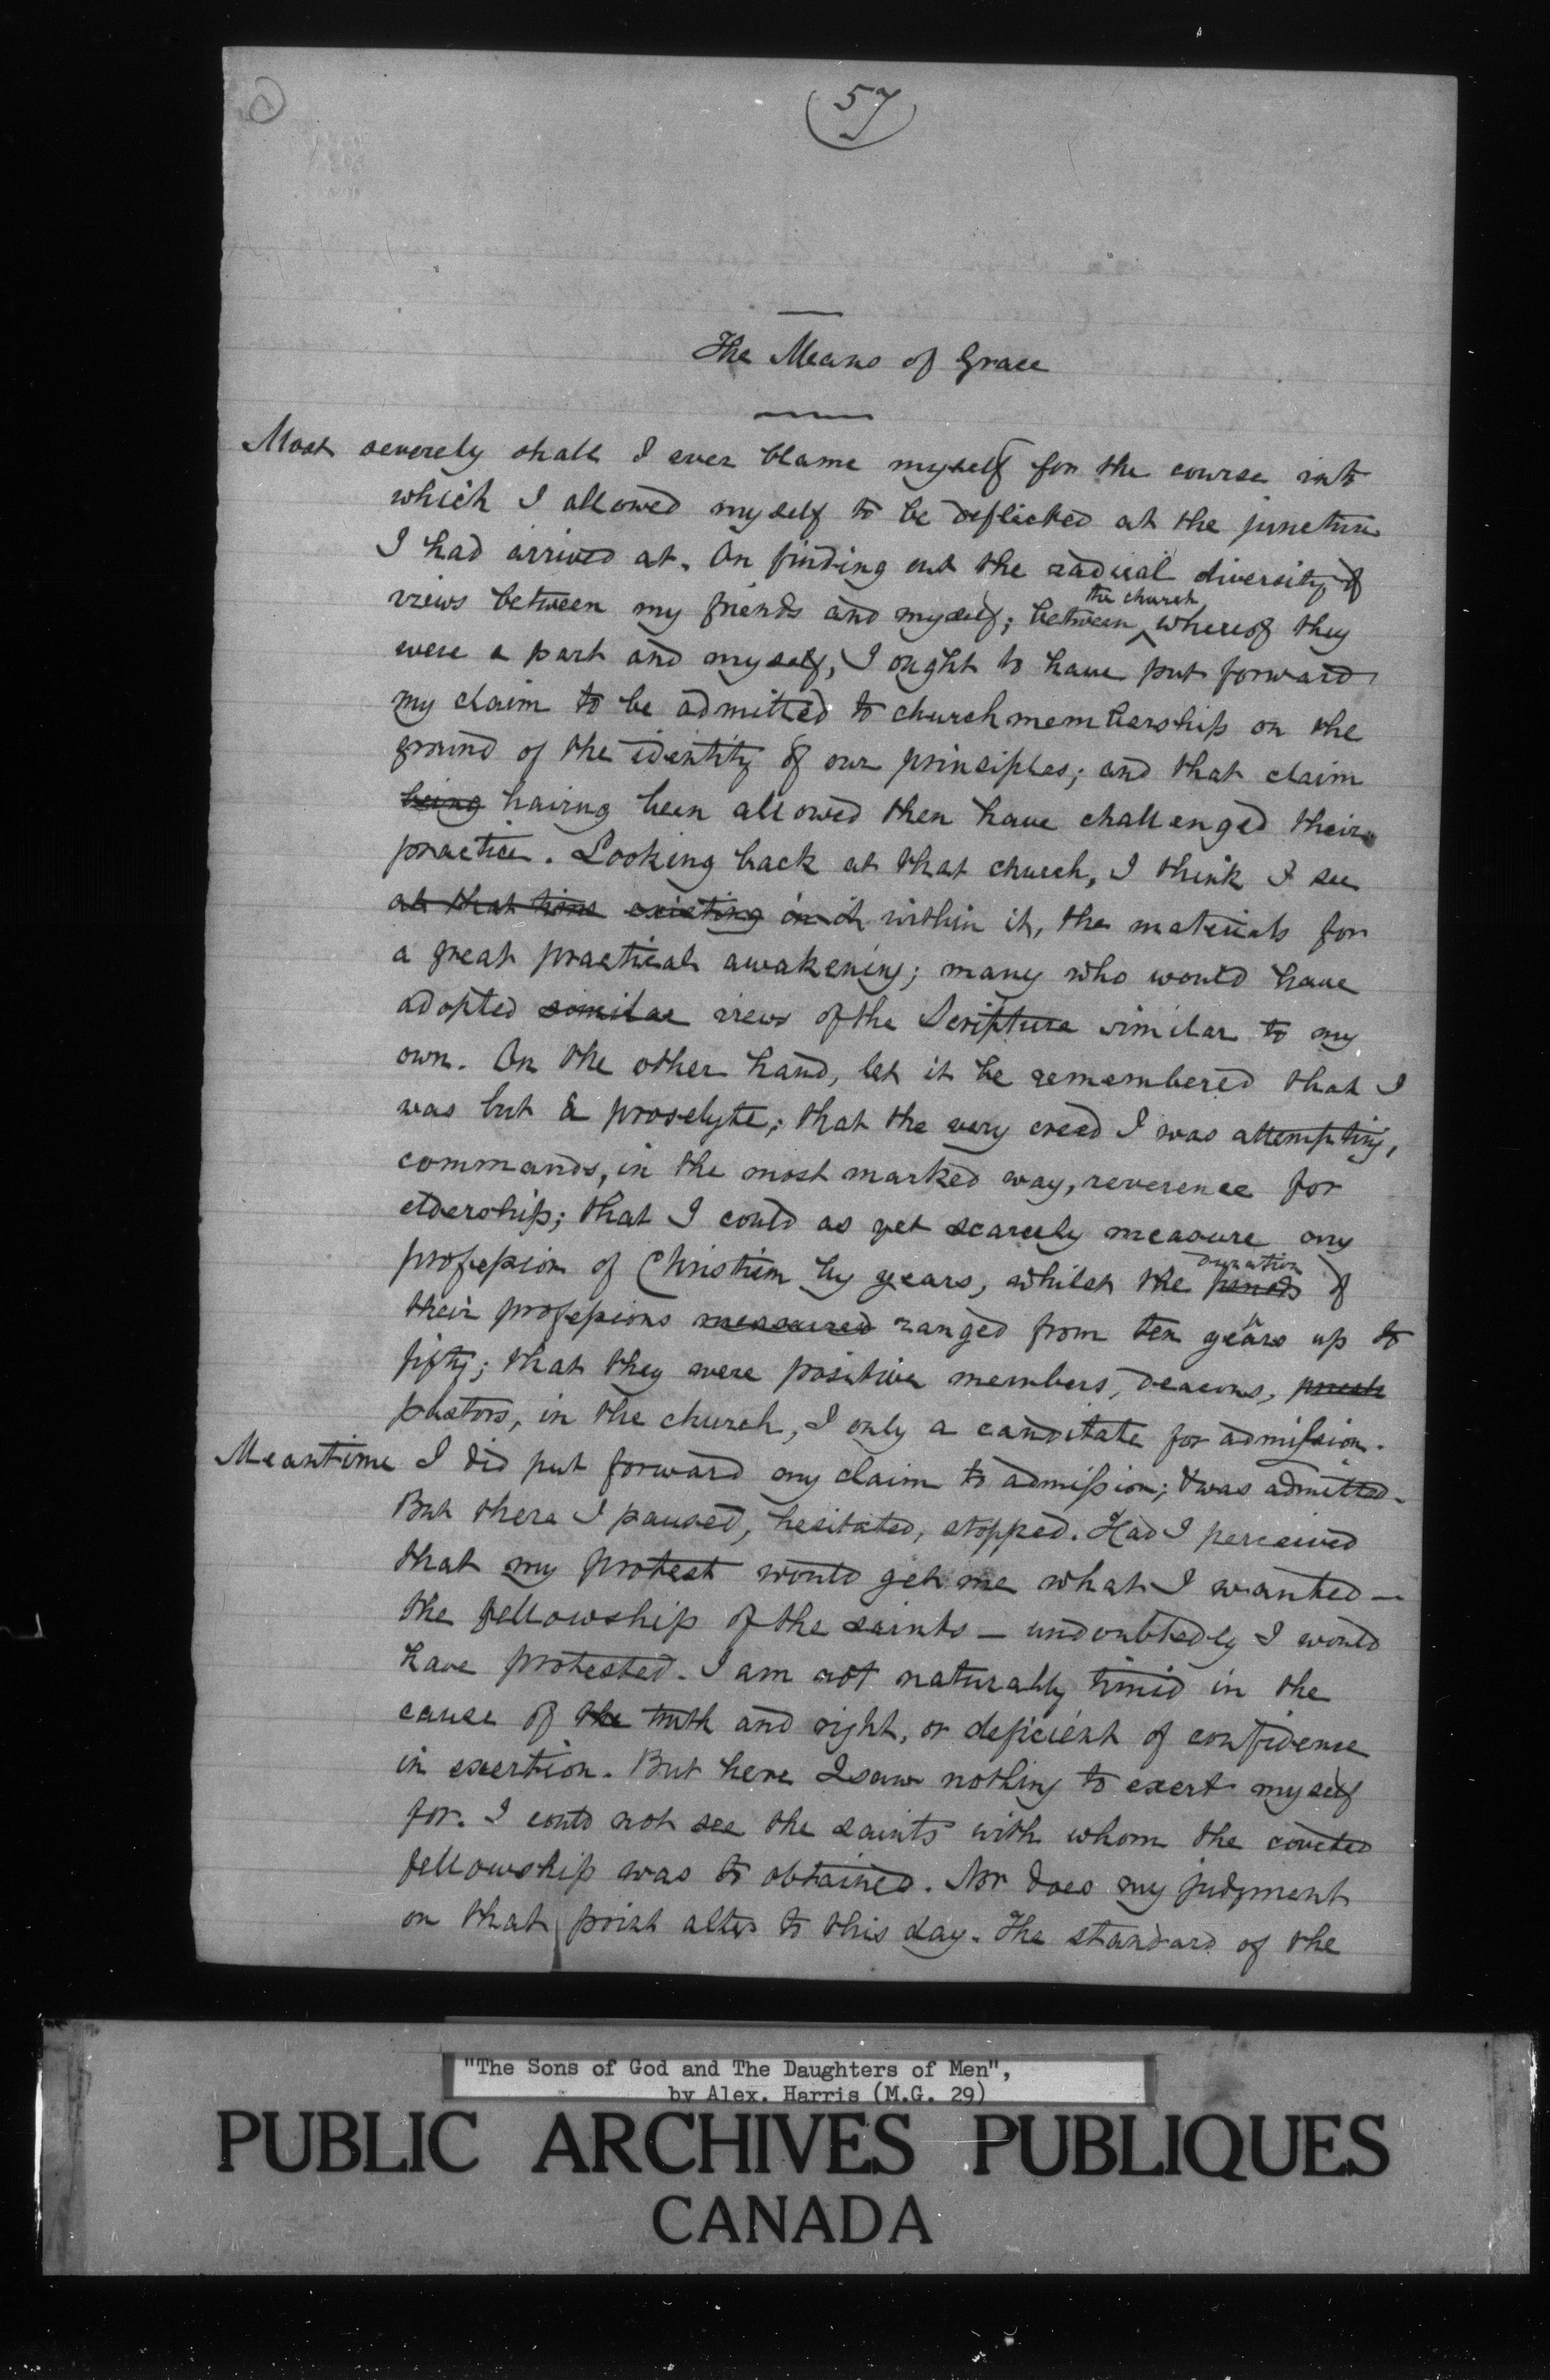 (57)
The Means of Grace
Most severely shall I ever blame myself for the course into
which I allowed myself to be deflected at the juncture
I had arrived at. On finding out the radical diversity of
views between my friends and myself; between the church whereof they
were a part and myself, I ought to have put forward
my claim to be admitted to churchmembership on the
ground of the identity of our principles; and that claim
being having been allowed then have challenged their
practice. Looking back at that church, I think I see
at that time existing in it within it, the materials for
a great practical awakening; many who would have
adopted similar views of the Scripture similar to my
own. On the other hand, let it be remembered that I
was but a proselyte; that the very creed I was attempting,
commands, in the most marked way, reverence for
eldership; that I could as yet scarcely measure my
profession of Christism by years, whilst the periods duration of
their professions measured ranged from ten years up to
fifty; that they were positive members, deacons,
pastors, in the church, I only a canditate for admission.
Meantime I did put forward my claim to admission; & was admitted.
But there I paused, hesitated, stopped. Had I perceived
that my protest would get me what I wanted —
the fellowship of the saints — undoubtedly I would
have protested. I am not naturally timid in the
cause of the truth and right, or deficient of confidence
in exertion. But here I saw nothing to exert myself
for. I could not see the saints with whom the coveted
fellowship was to obtained. Nor does my judgment
on that point alter to this day. The standard of the
"The Sons of God and The Daughters of Men",
by Alex. Harris (M.G. 29)
PUBLIC ARCHIVES PUBLIQUES
CANADA